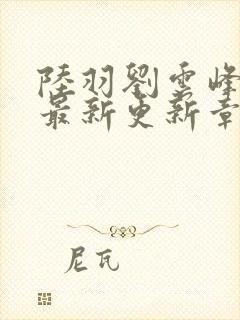 陸羽劉雲峰
最新更新章
尼瓦